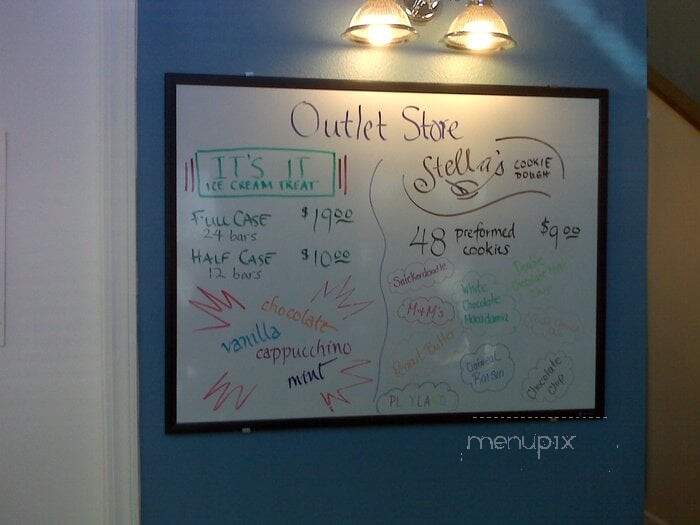 Outlet Store
IT'S IT
ICE CREAM TREAT
FULL CASE $19.00
24 bars
HALF CASE $10.00
12 bars
chocolate
vanilla
cappucchino
mint
Stella's COOKIE DOUGH
48 preformed cookies $9.00
Snickerdoodle
M+M's
Peanut Butter
White
Chocolate
Macadamia
Double
Chocolate
Oatmeal
Raisin
Chocolate
Chip
menupix